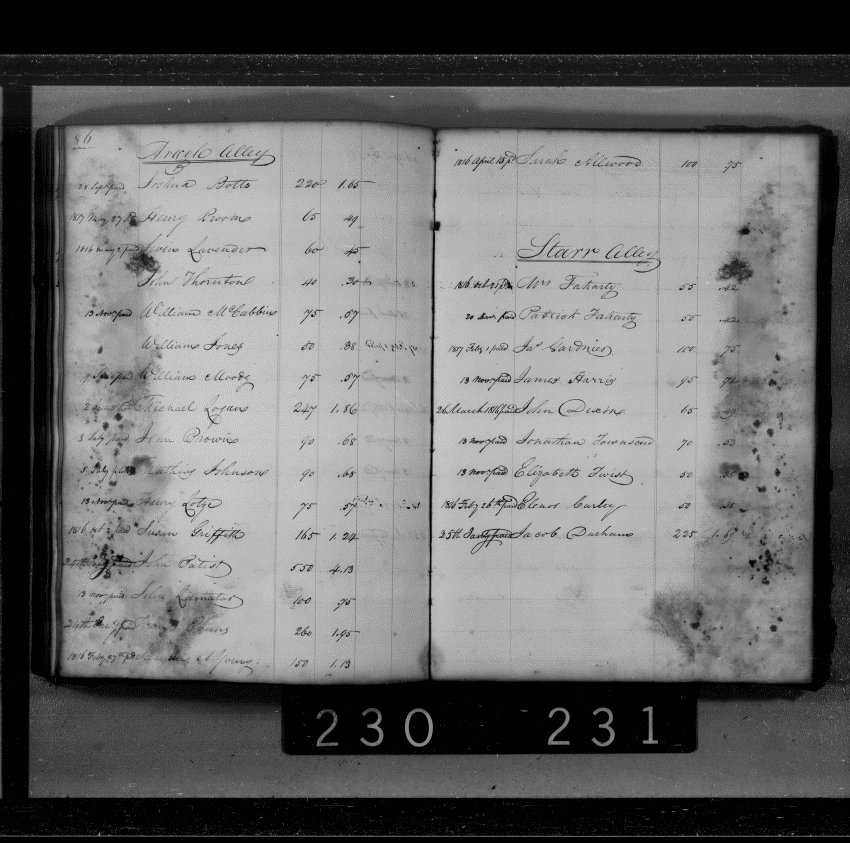 86
Argyle Alley
28 Sept paid Joshua Botts 220 1.65
1817 May 27 Pd Henry Broom 65 49
1816 May 2 paid Lavender 60 45
John Thornton 40 .30
13 Nov paid William McCubbins 75 .57
William Jones 50 .38
paid William Moody 75 .57
Michael Logan 247 1.86
3 July paid 90 .68
5 July paid Johnson 90 .68
13 Nov paid Henry 75 .57
1816 Oct 2 paid Susan Griffith 165 1.24
24th paid John 550 4.13
13 Nov paid John 100 75
paid Evans 260 1.95
1816 Feby 27th pd Young 150 1.13
1816 April 13 pd Sarah Allwood 100 75
Starr Alley
1816 Oct 21 pd Mrs Faharty 55 .42
20 paid Patrick Faharty 55 .42
1817 Feby 1 paid Jas Gardnier 100 75
13 Nov paid James Harris 95 72
26 March 1816 paid John Dixon 65 49
13 Nov paid Jonathan Townsend 70 .53
13 Nov paid Elizabeth Twist 50 .38
1816 Feby 26th paid Elenor Curley 50 .38
25th paid Jacob Durham 225 1.69
230 231